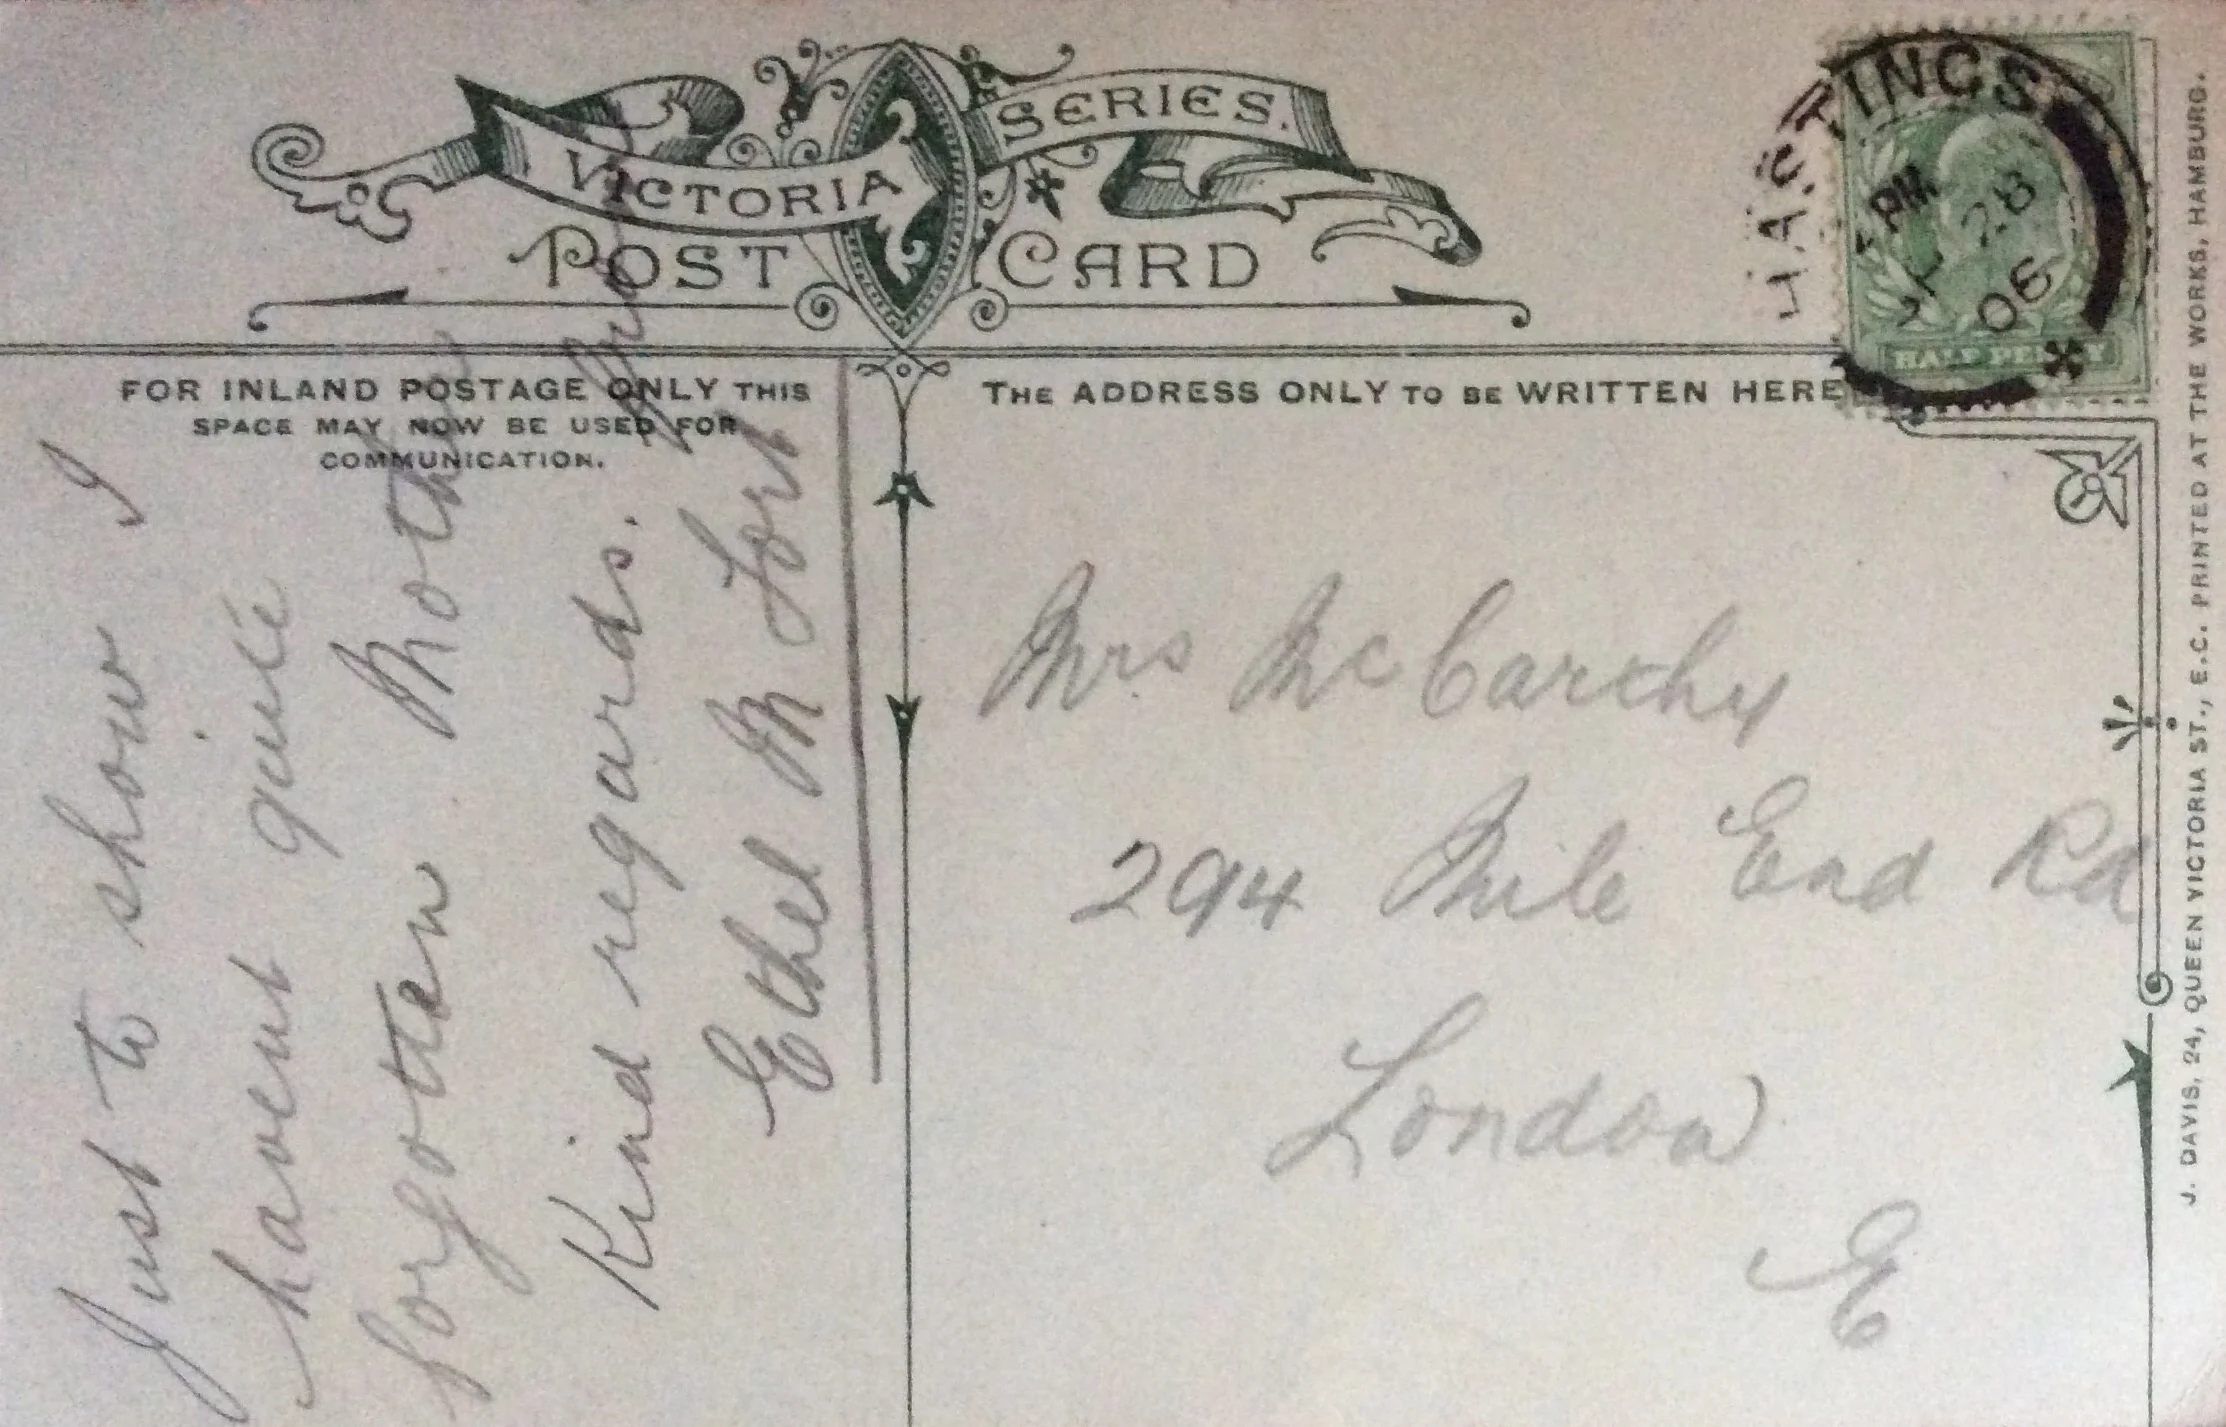 VICTORIA SERIES.
POST CARD
FOR INLAND POSTAGE ONLY THIS
SPACE MAY NOW BE USED FOR
COMMUNICATION.
THE ADDRESS ONLY TO BE WRITTEN HERE
HASTINGS
PM
28
06
HALF PENNY
Just to show I
havent quite
forgotten. Mother
Kind regards.
Ethel M Fort
Mrs McCarthy
294 Mile End Rd
London
E
J. DAVIS, 24, QUEEN VICTORIA ST., E.C. PRINTED AT THE WORKS, HAMBURG.